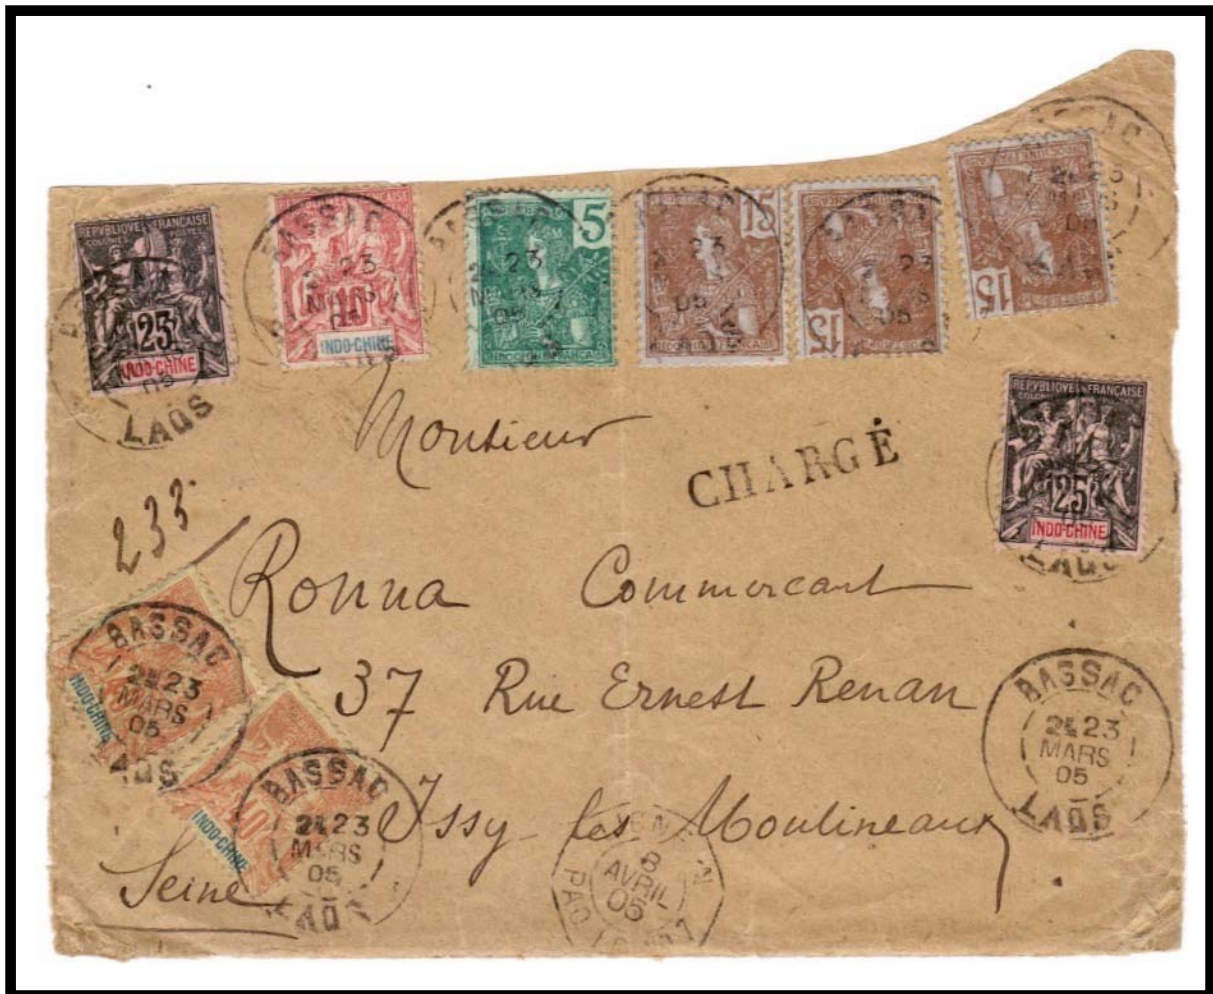 BASSAC
REPVBLIQVE FRANÇAISE
COLONIES POSTES
25
INDO-CHINE
05
LAOS
BASSAC
23
MARS
05
10
INDO-CHINE
5
23
05
INDOCHINE FRANÇAISE
15
23
05
15
23
05
15
23
05
REPVBLIQVE FRANÇAISE
25
INDO-CHINE
LAOS
Monsieur
CHARGÉ
233
Ronna Commercant
37 Rue Ernest Renan
Issy les Moulineaux
Seine
BASSAC
23
MARS
05
LAOS
INDO-CHINE
BASSAC
23
MARS
05
LAOS
INDO-CHINE
BASSAC
23
MARS
05
LAOS
8
AVRIL
05